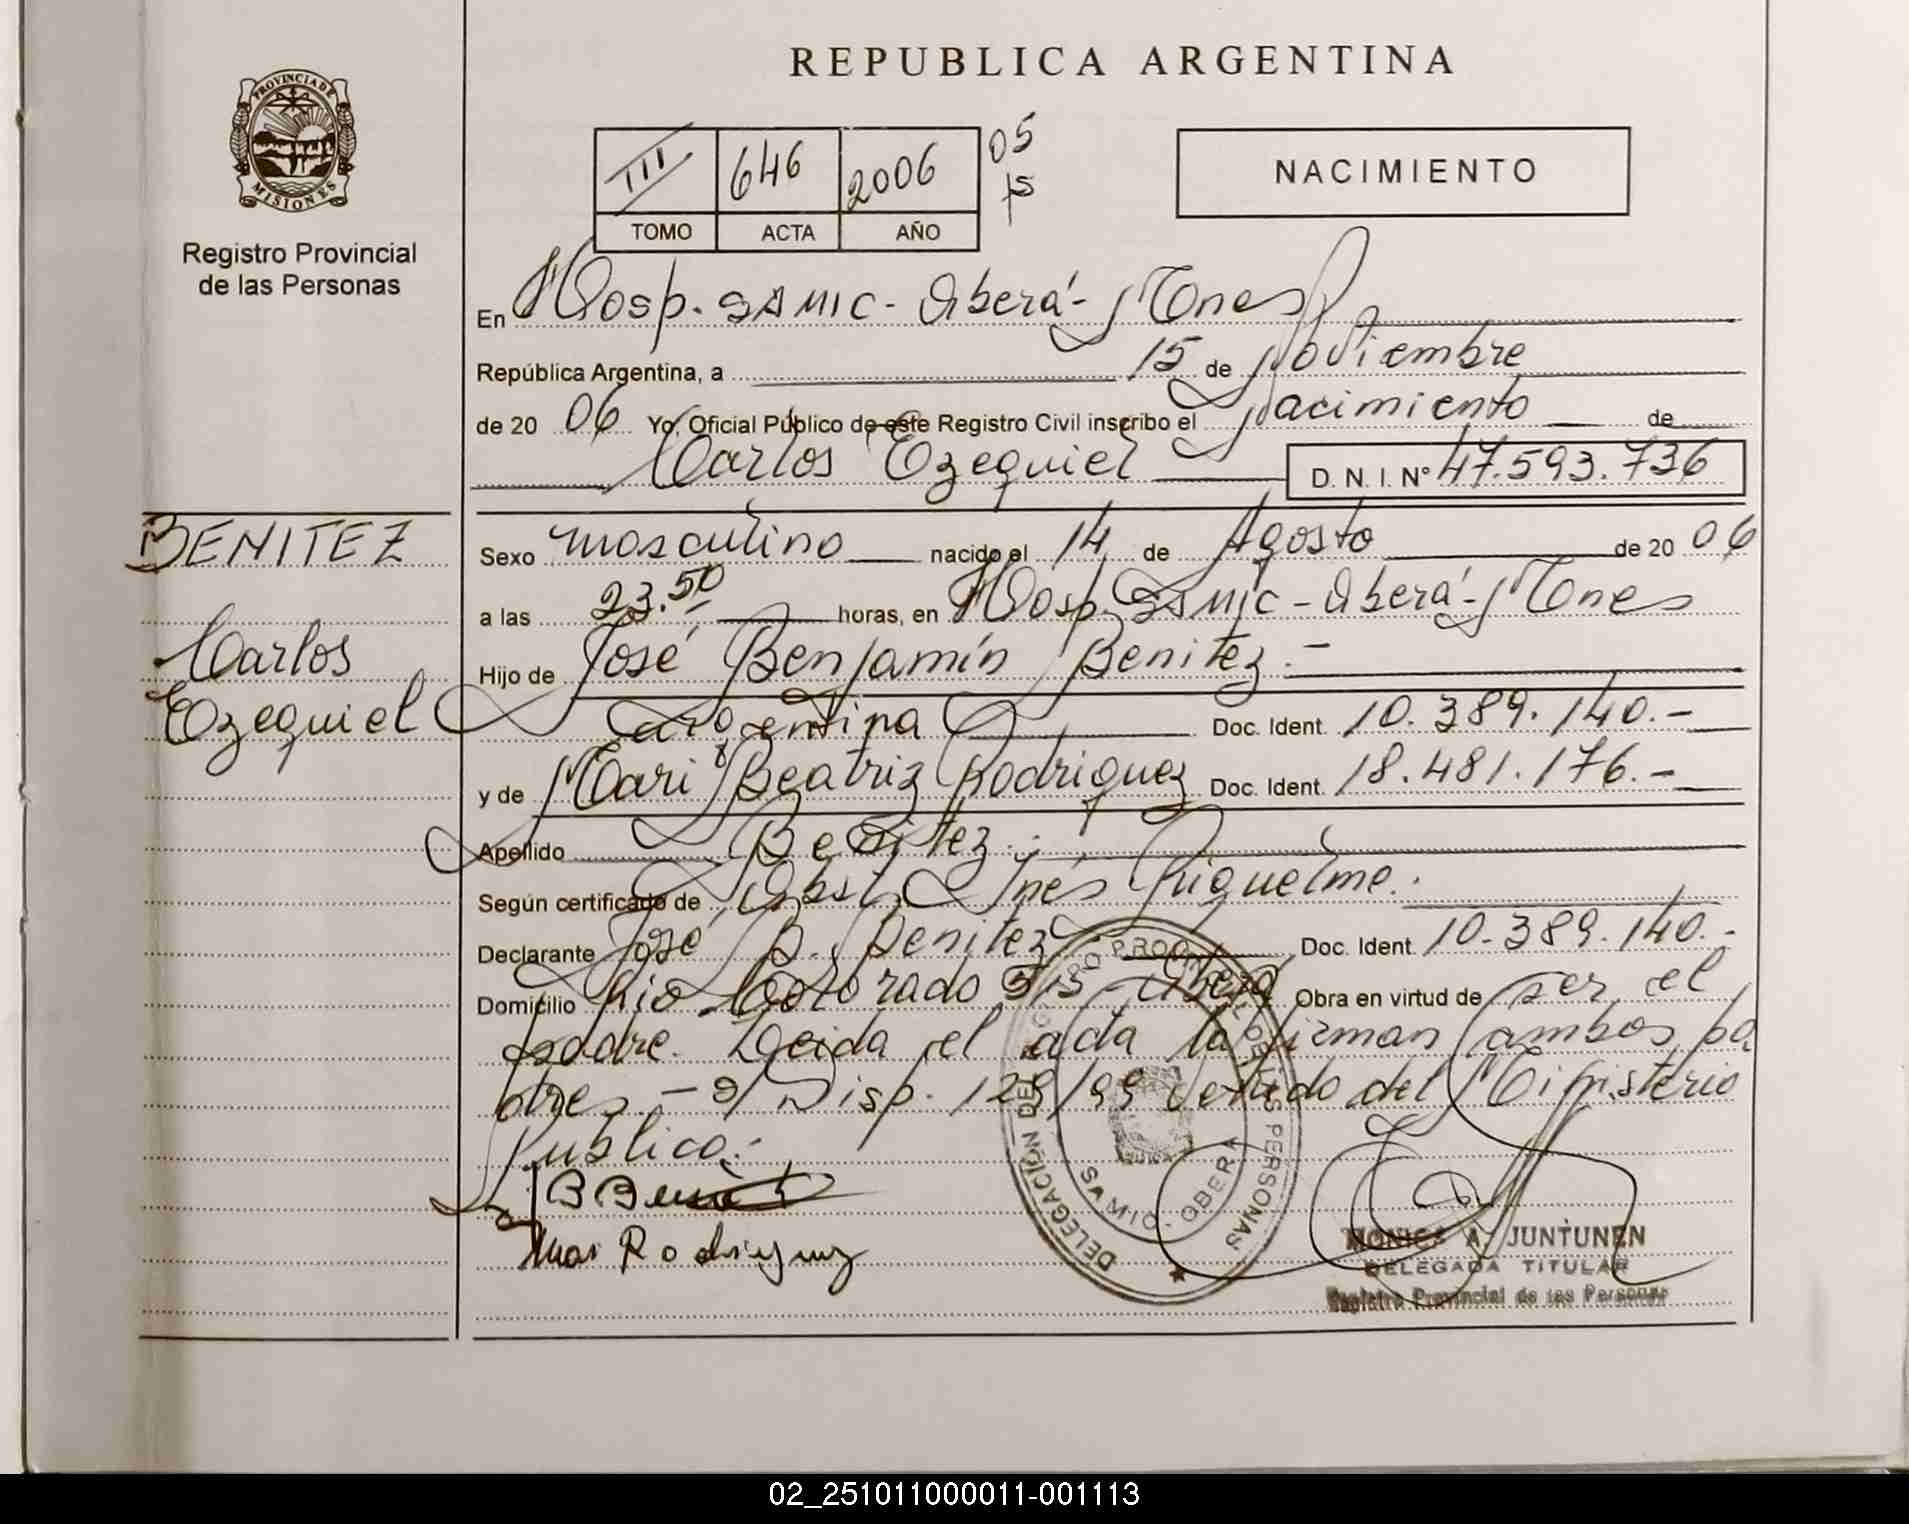 REPUBLICA ARGENTINA
PROVINCIA DE MISIONES
Registro Provincial
de las Personas
III 646 2006 05
TOMO ACTA AÑO
NACIMIENTO
En Hosp. SAMIC - Oberá - Mnes
República Argentina, a 15 de Noviembre
de 20 06 Yo, Oficial Público de este Registro Civil inscribo el Nacimiento de
Carlos Ezequiel D. N. I. Nº 47.593.736
BENITEZ
Carlos
Ezequiel
Sexo masculino nacido el 14 de Agosto de 20 06
a las 23.50 horas, en Hosp. SAMIC - Oberá - Mnes
Hijo de José Benjamín Benitez.-
argentina Doc. Ident. 10.389.140.-
y de Mari Beatriz Rodriguez Doc. Ident. 18.481.176.-
Apellido Benitez.
Según certificado de Obst. Inés Riquelme.
Declarante José B. Benitez Doc. Ident. 10.389.140.-
Domicilio Rio Colorado Oberá Obra en virtud de ser el
padre. Leida el acta la firman ambos pa
dres - s/ Disp. 129/99 del Ministerio
Publico.-
B Benitez
Mari Rodriguez
DELEGACIÓN DEL REGISTRO PROVINCIAL DE LAS PERSONAS
SAMIC - OBERA
MONICA A. JUNTUNEN
DELEGADA TITULAR
Registro Provincial de las Personas
02_251011000011-001113